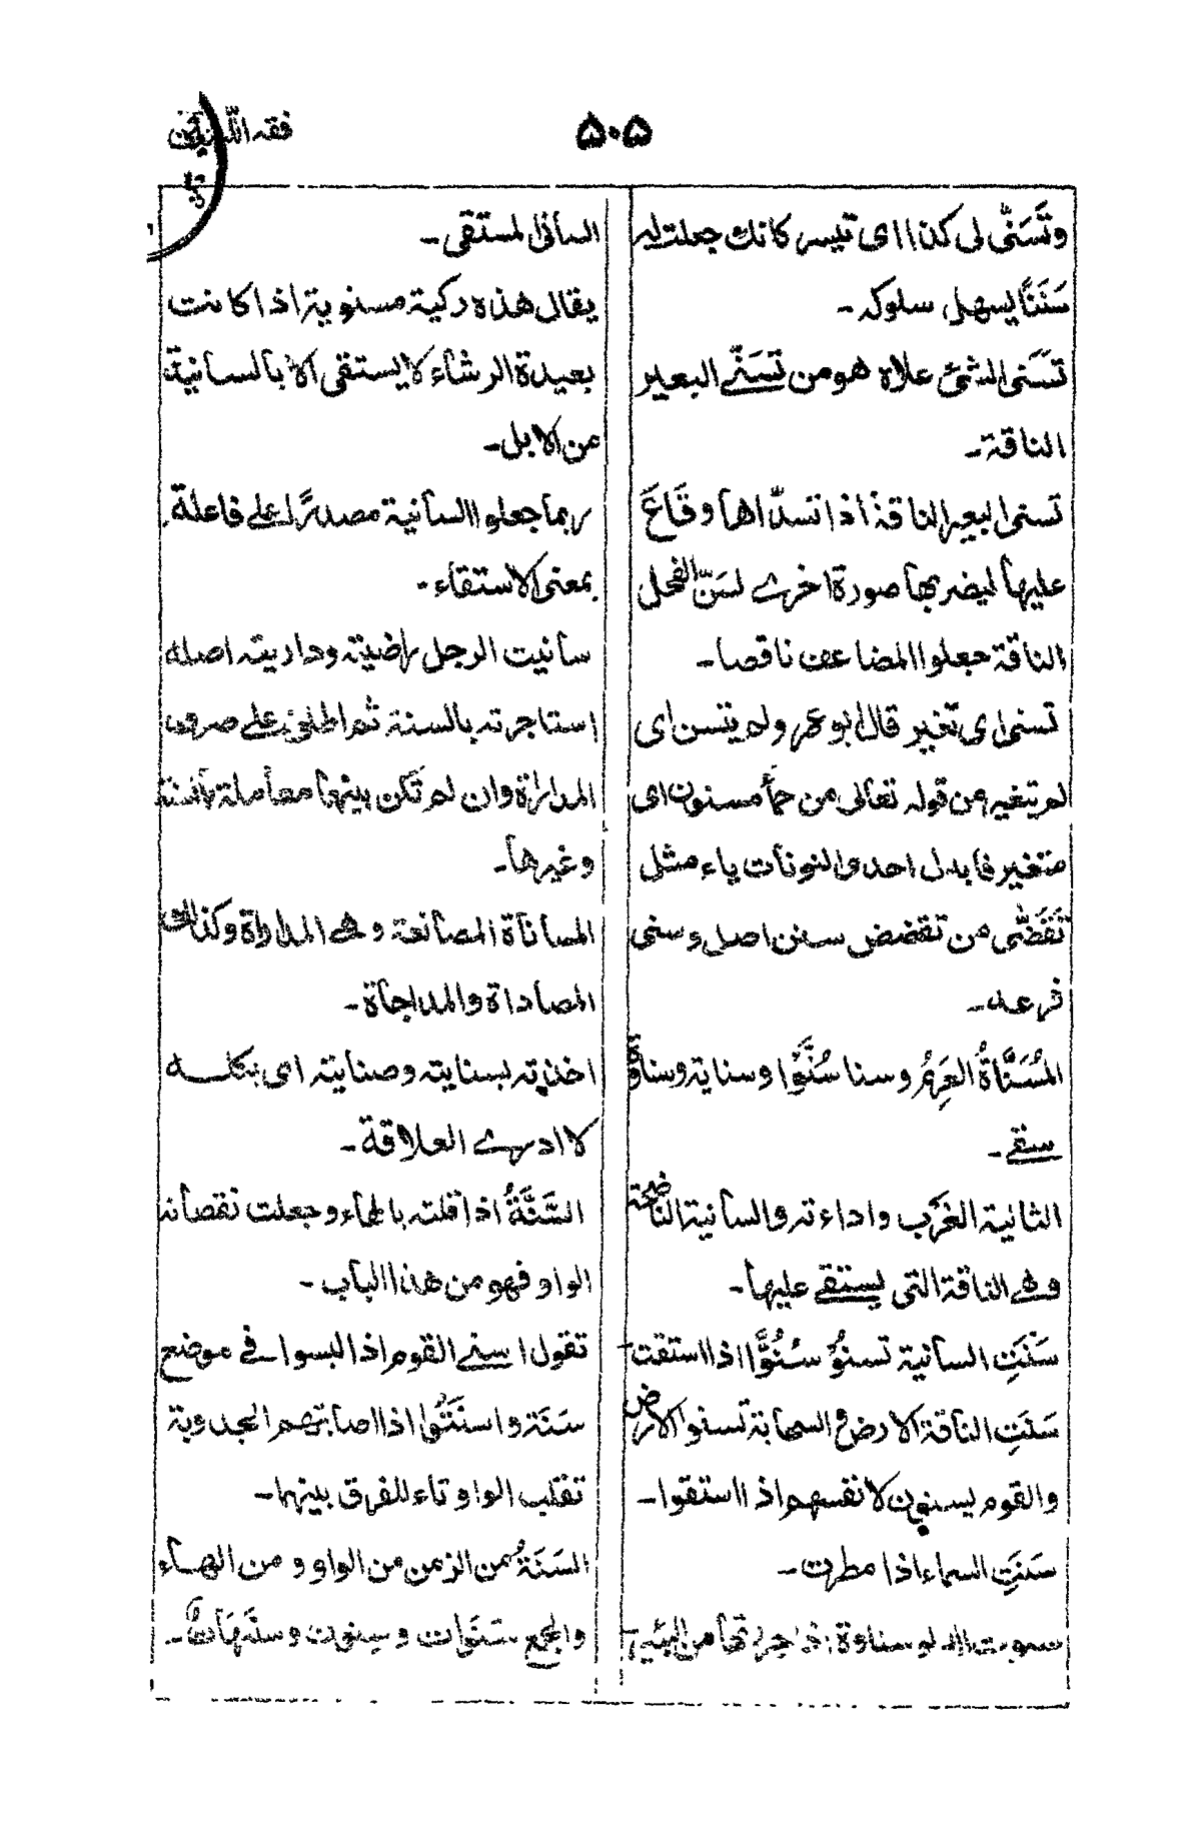 ۵۰۵
فقه اللسان
وتَسَنّٰى لى كذا اى تيسر كانك جعلت له
سَنَنًا يسهل سلوكه -
تَسَنى الشئ علاه هو من تسنّے البعير
الناقة -
تسنى البعير الناقة اذا تسدّاها وقَاعَ
عليها ليضربها صورة اخرے لسَنّ الفحل
الناقة جعلوا المضاعف ناقصا -
تسنى اى تغير قال ابو عمرو لم يتسن اى
لم يتغير من قوله تعالى من حمأ مسنون اى
متغير فابدل احدى النونات ياء مثل
تَقَضّٰى من تقضض سنن اصل وسنى
فرعه -
المُسَنَّاةُ العَرِمُ وسنا سُنُوًّا وسناية وسناوة
سقے -
الثانية الغَرْب واداءته والسانية الناضحة
وهے الناقة التى يستقے عليها -
سَنَتِ السانية تسنوُ سُنُوًّا اذا استقت
سَنَتِ الناقة الارض والسحابة تسنوا الارض
والقوم يسنون لانفسهم اذا استقوا -
سَنَتِ السماء اذا مطرت -
سنوت الدلو سناوة اذا جررتها من البئر
السانى المستقى -
يقال هذه ركية مسنوية اذا كانت
بعيدة الرشاء لا يستقى الا بالسانية
من الابل -
ربما جعلوا السانية مصدرًا على فاعلة
بمعنى الاستقاء -
سانيت الرجل راضيته وداريته اصله
استاجرته بالسنة ثم اطلق على صرف
المداراة وان لم تكن بينهما معاملة بالسنة
وغيرها -
المساناة المصانعة وهے المداراة وكذالك
المصاداة والمداجاة -
اخذته بسنايته وصنايته اى بكله
لا ادرے العلاقة -
السَّنَةُ اذا قلته بالهاء وجعلت نقصانه
الواو فهو من هذا الباب -
تقول اسنے القوم اذا لبسوا فى موضع
سَنَة واسنَتُوا اذا اصابتهم الجدوبة
تقلب الواو تاء للفرق بينهما -
السَنَةُ من الزمن من الواو و من الهاء
والجمع سَنَوات وسِنون وسنَهَات -